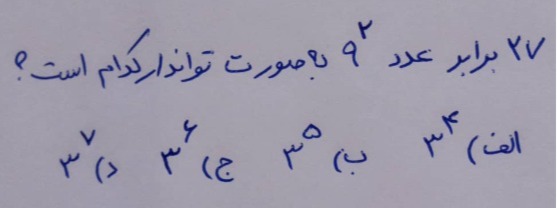 ۲۷ برابر عدد ۹^۲ به صورت تواندار کدام است؟
الف) ۳^۴ ب) ۳^۵ ج) ۳^۶ د) ۳^۷